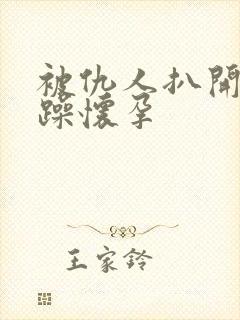 被仇人扒開
躁懷孕
王家鈴